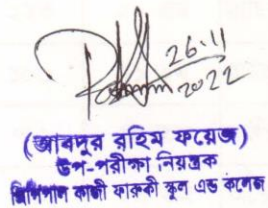 26.11
2022
(আবদুর রহিম ফয়েজ)
উপ-পরীক্ষা নিয়ন্ত্রক
প্রিন্সিপাল কাজী ফারুকী স্কুল এন্ড কলেজ